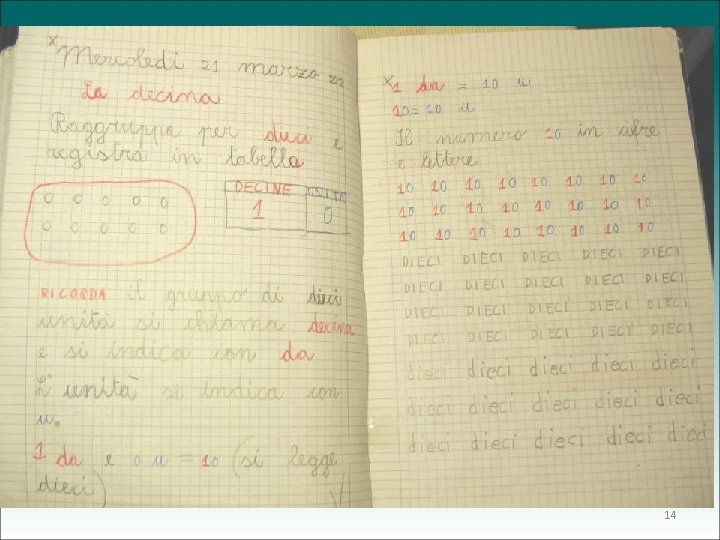 x Mercoledì 21 marzo 2012
La decina
Raggruppa per dieci e
registra in tabella
DECINE UNITÀ
1 0
RICORDA il gruppo di dieci
unità si chiama decina
e si indica con da
L'unità si indica con
u.
1 da e 0 u = 10 (si legge
dieci)
x 1 da = 10 u
10 = 10 u
Il numero 10 in cifre
e lettere
10 10 10 10 10 10 10 10
10 10 10 10 10 10 10 10
10 10 10 10 10 10 10 10
DIECI DIECI DIECI DIECI DIECI
DIECI DIECI DIECI DIECI DIECI
DIECI DIECI DIECI DIECI DIECI
DIECI DIECI DIECI DIECI DIECI
dieci dieci dieci dieci dieci
dieci dieci dieci dieci dieci
dieci dieci dieci dieci dieci
14